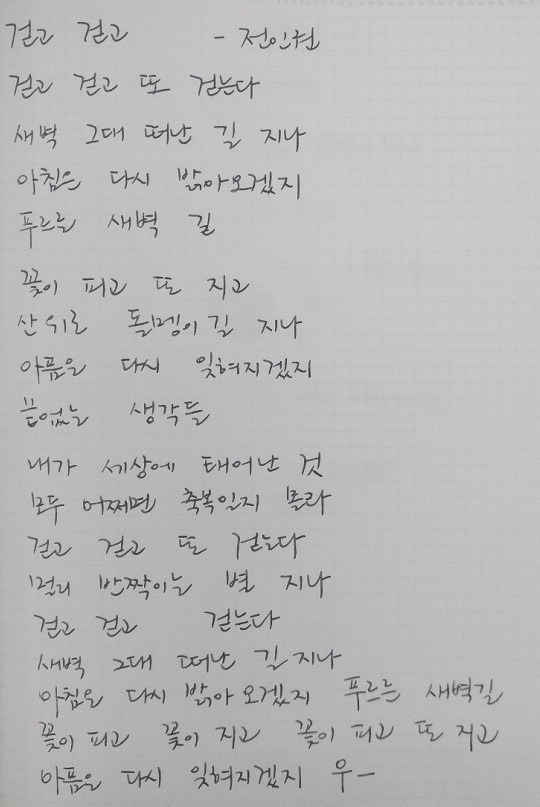 걷고 걷고 - 전인권
걷고 걷고 또 걷는다
새벽 그대 떠난 길 지나
아침은 다시 밝아오겠지
푸르른 새벽 길
꽃이 피고 또 지고
산 위로 돌멩이길 지나
아픔은 다시 잊혀지겠지
끝없는 생각들
내가 세상에 태어난 것
모두 어쩌면 축복일지 몰라
걷고 걷고 또 걷는다
멀리 반짝이는 별 지나
걷고 걷고 걷는다
새벽 그대 떠난 길 지나
아침은 다시 밝아 오겠지 푸르른 새벽길
꽃이 피고 꽃이 지고 꽃이 피고 또 지고
아픔은 다시 잊혀지겠지 우-